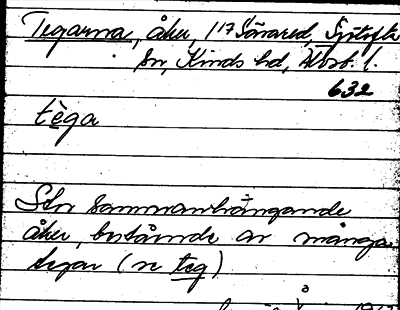 Tegarna, åker, 1¹⁷ Sånared, Sjötofta
sn, Kinds hd, Älvsb. l.
632
tèga
Stor sammanhängande
åker, bestående av många
tegar (se teg)